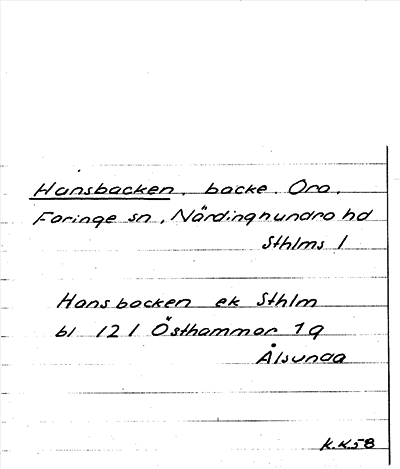 Hansbacken, backe. Ora.
Faringe sn, Närdinghundra hd
Sthlms l
Hansbacken ek Sthlm
bl 121 Östhammar 1g
Ålsunda
K.K.58